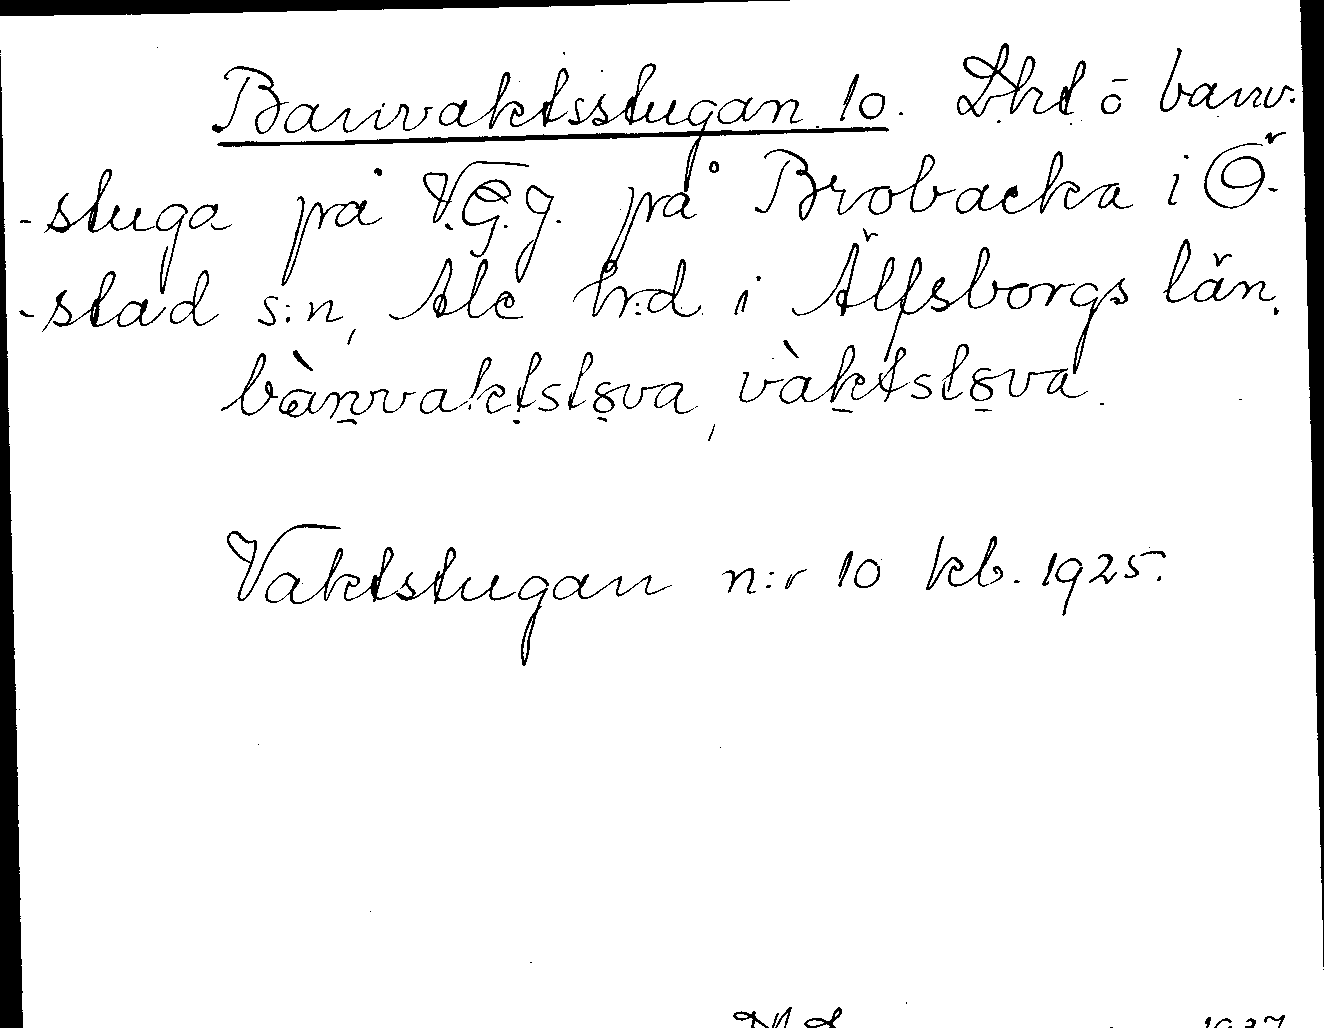 Banvaktsstugan 10. Dht ō banv.
-stuga på V.G.J. på Brobacka i Ö-
-stad s:n, Ale hr:d i Älfsborgs län.
bànvaktstova, vàktstova.
Vaktstugan n:r 10 kb. 1925.
1937